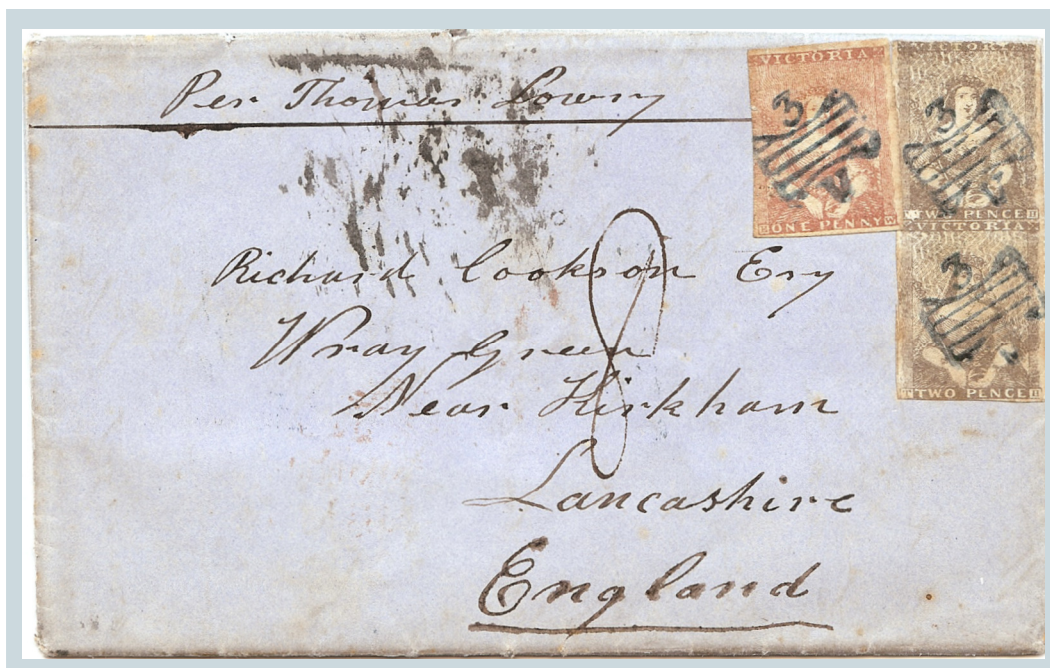 Per Thomas Lowry
VICTORIA
ONE PENNY
VICTORIA
TWO PENCE
VICTORIA
TWO PENCE
3
V
3
3
8
Richard Cookson Esq
Wray Green
Near Kirkham
Lancashire
England